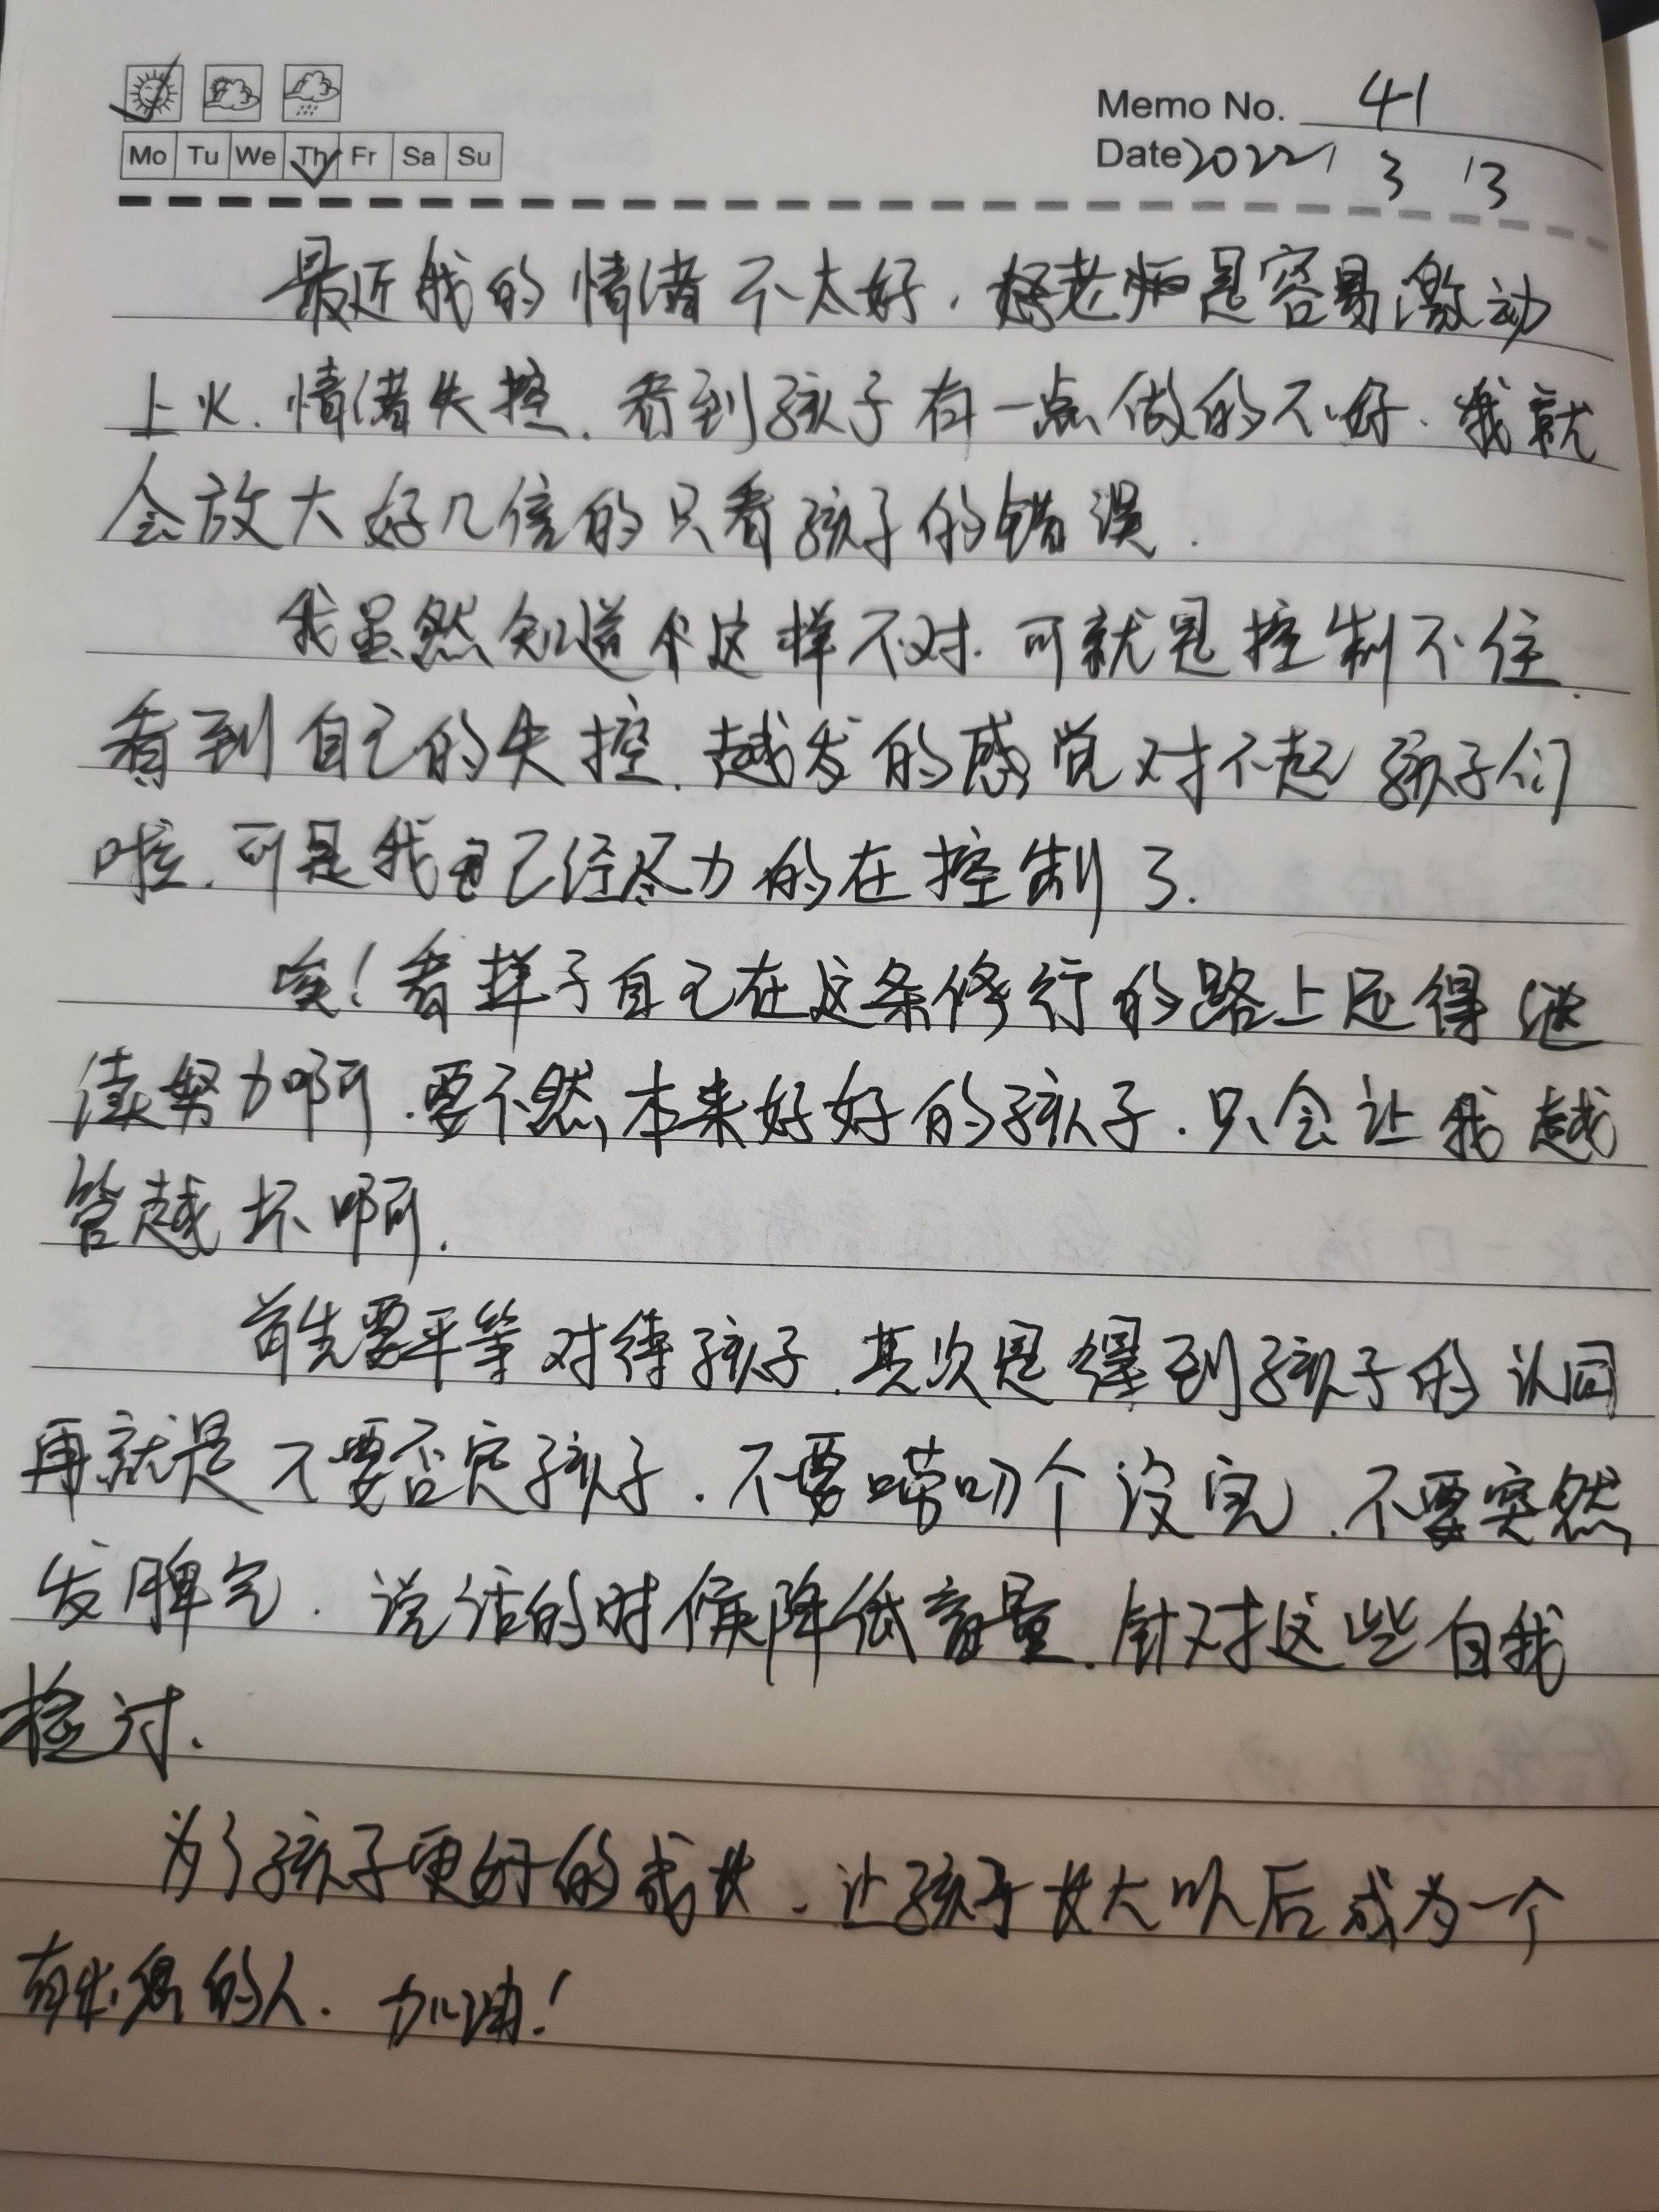 Memo No. 41
Mo Tu We Th Fr Sa Su
Date 2022 3 13
最近我的情绪不太好.老是容易激动
上火.情绪失控.看到孩子有一点做的不好.我就
会放大好几倍的只看孩子的错误.
我虽然知道这样不对.可就是控制不住.
看到自己的失控.越发的感觉对不起孩子们
啦.可是我已经尽力的在控制了.
唉!看样子自己在这条修行的路上还得继
续努力啊.要不然本来好好的孩子.只会让我越
管越坏啊.
首先要平等对待孩子.其次是得到孩子的认同
再就是不要否定孩子.不要唠叨个没完.不要突然
发脾气.说话的时候降低音量.针对这些自我
检讨.
为了孩子更好的成长.让孩子长大以后成为一个
有出息的人.加油!